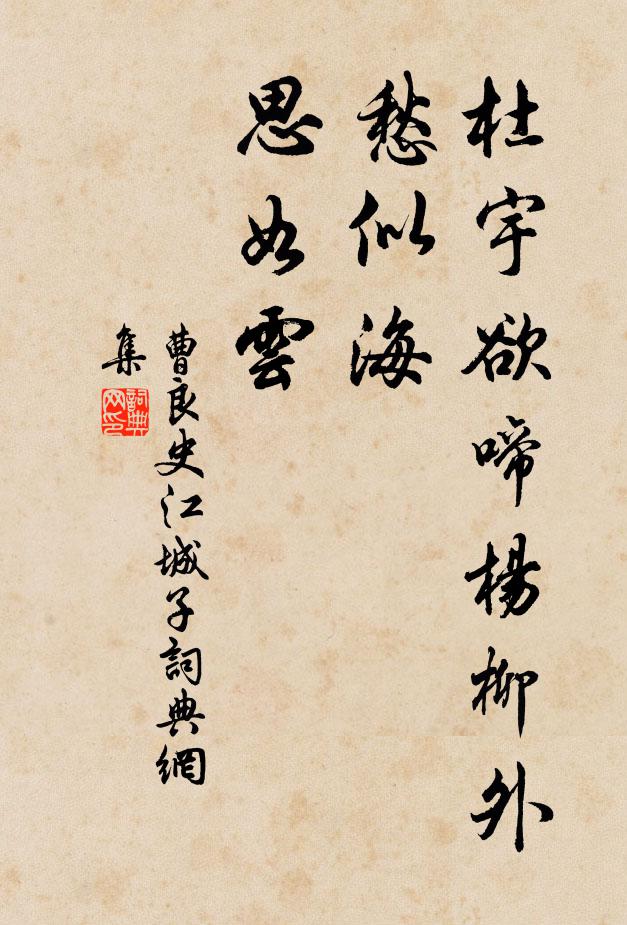 杜宇欲啼楊柳外
愁似海
思如雲
曹良史江城子詞典網
集
詞典
网印